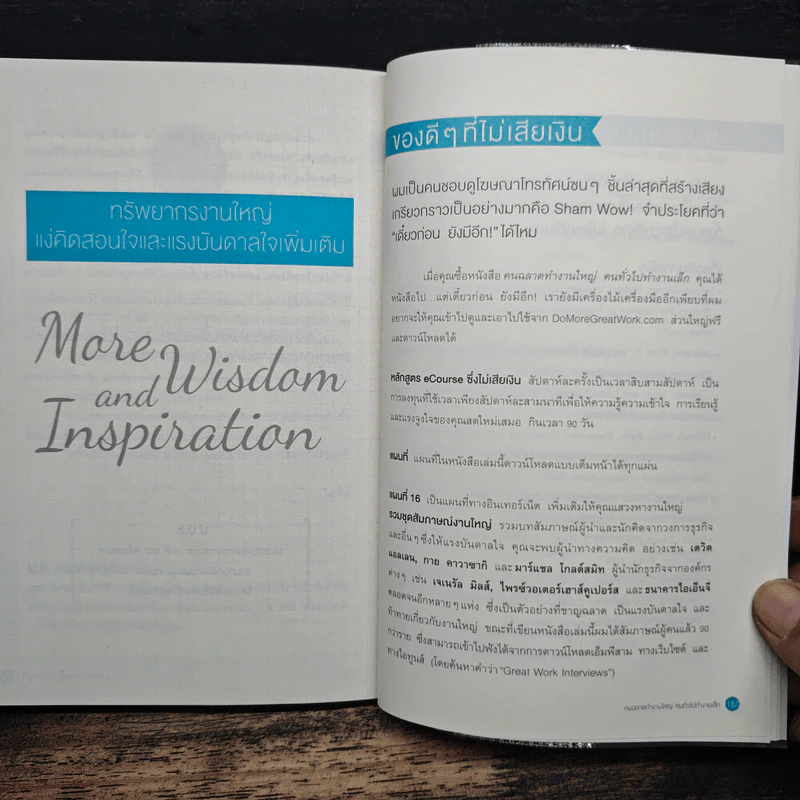 ทรัพยากรงานใหญ่
แง่คิดสอนใจและแรงบันดาลใจเพิ่มเติม
More
and Wisdom
Inspiration
ของดีๆ ที่ไม่เสียเงิน
ผมเป็นคนชอบดูโฆษณาโทรทัศน์ซนๆ ชิ้นล่าสุดที่สร้างเสียง
เกรียวกราวเป็นอย่างมากคือ Sham Wow! จำประโยคที่ว่า
“เดี๋ยวก่อน ยังมีอีก!” ได้ไหม
เมื่อคุณซื้อหนังสือ คนฉลาดทำงานใหญ่ คนทั่วไปทำงานเล็ก คุณได้
หนังสือไป...แต่เดี๋ยวก่อน ยังมีอีก! เรายังมีเครื่องไม้เครื่องมืออีกเพียบที่ผม
อยากจะให้คุณเข้าไปดูและเอาไปใช้จาก DoMoreGreatWork.com ส่วนใหญ่ฟรี
และดาวน์โหลดได้
หลักสูตร eCourse ซึ่งไม่เสียเงิน สัปดาห์ละครั้งเป็นเวลาสิบสามสัปดาห์ เป็น
การลงทุนที่ใช้เวลาเพียงสัปดาห์ละสามนาทีเพื่อให้ความรู้ความเข้าใจ การเรียนรู้
และแรงจูงใจของคุณสดใหม่เสมอ กินเวลา 90 วัน
แผนที่ แผนที่ในหนังสือเล่มนี้ดาวน์โหลดแบบเต็มหน้าได้ทุกแผ่น
แผนที่ 16 เป็นแผนที่ทางอินเทอร์เน็ต เพิ่มเติมให้คุณแสวงหางานใหญ่
รวมชุดสัมภาษณ์งานใหญ่ รวมบทสัมภาษณ์ผู้นำและนักคิดจากวงการธุรกิจ
และอื่นๆ ซึ่งให้แรงบันดาลใจ คุณจะพบผู้นำทางความคิด อย่างเช่น เดวิด
แอลเลน, กาย คาวาซากิ และ มาร์แชล โกลด์สมิท ผู้นำนักธุรกิจจากองค์กร
ต่างๆ เช่น เจเนรัล มิลส์, ไพรซ์วอเตอร์เฮาส์คูเปอร์ส และ ธนาคารไอเอ็นจี
ตลอดจนอีกหลายๆ แห่ง ซึ่งเป็นตัวอย่างที่ชาญฉลาด เป็นแรงบันดาลใจ และ
ท้าทายเกี่ยวกับงานใหญ่ ขณะที่เขียนหนังสือเล่มนี้ผมได้สัมภาษณ์ผู้คนแล้ว 90
กว่าราย ซึ่งสามารถเข้าไปฟังได้จากการดาวน์โหลดเอ็มพีสาม ทางเว็บไซต์ และ
ทางไอทูนส์ (โดยค้นหาคำว่า “Great Work Interviews”)
คนฉลาดทำงานใหญ่ คนทั่วไปทำงานเล็ก 187